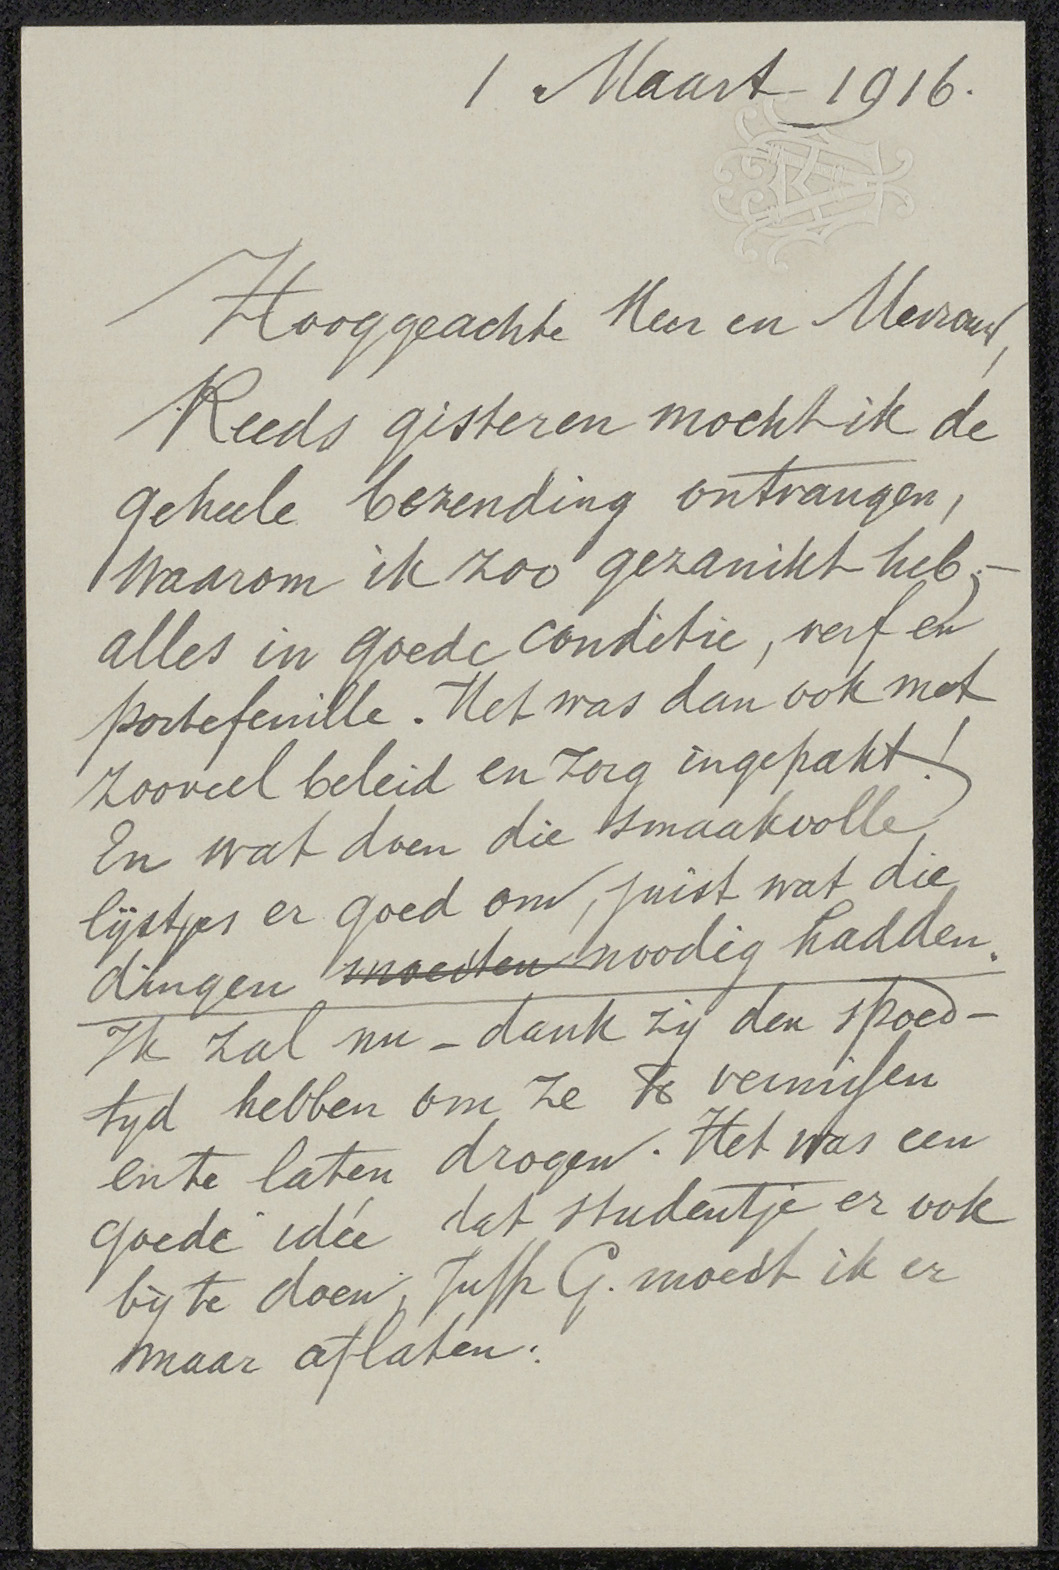 1 Maart 1916.
Hooggeachte Heer en Mevrouw,
Reeds gisteren mocht ik de
geheele bezending ontvangen,
waarom ik zoo gezanikt heb; -
alles in goede conditie, verf en
portefeuille. Het was dan ook met
zooveel beleid en zorg ingepakt!
En wat doen die smaakvolle
lijstjes er goed om, juist wat die
dingen moesten noodig hadden.
Ik zal nu - dank zij den spoed -
tyd hebben om ze te vernissen
en te laten drogen. Het was een
goede idée dat studentje er ook
bij te doen, Juff G. moest ik er
maar aflaten.